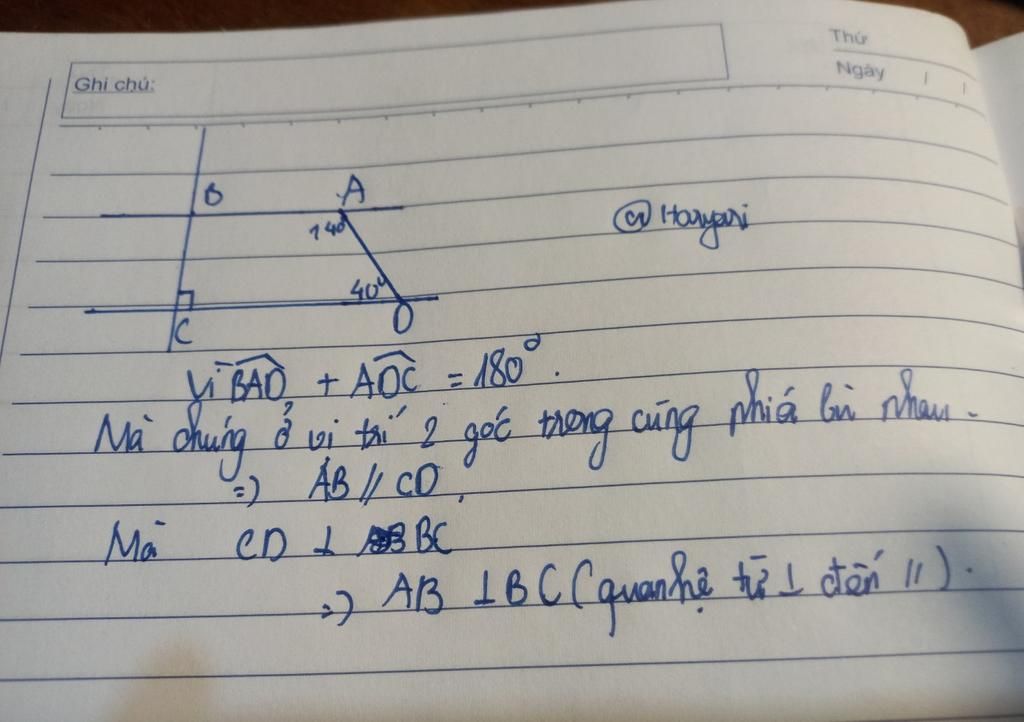 Thứ
Ngày / /
Ghi chú:
B A
140
40°
C D
@Haryari
Vì BAD + ADC = 180°.
Mà chúng ở vị trí 2 góc trong cùng phía bù nhau.
=> AB // CD.
Mà CD ⊥ BC
=> AB ⊥ BC (quan hệ từ ⊥ đến //).